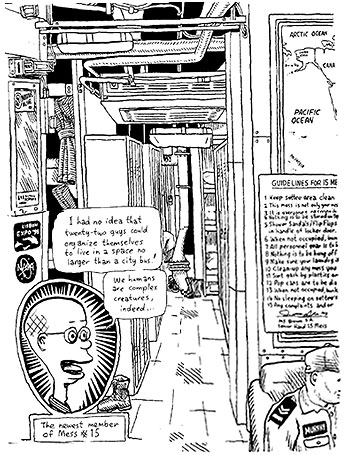 ARCTIC OCEAN
CANA
PACIFIC
OCEAN
LISBON
EXPO '98
I had no idea that
twenty-two guys could
organize themselves
to live in a space no
larger than a city bus!
We humans
are complex
creatures,
indeed...
GUIDELINES FOR 15 ME
1 Keep settee area clean
2 This mess is not only your
3 It is everyone's
4 Nothing is to be
5 Shower Sandals/Flip Flops
on handle of locker door.
6 When not occupied, bun
7 All personnel gear is to
8 Nothing is to be hung off
9 Make sure your laundry
10 Clean up any mess you
11 Sort
12 Pop cans are to be
13 When not occupied, bunk
14 No sleeping on settee's
15 Any complaints and or
15 Mess
MURPHY
The newest member
of Mess № 15